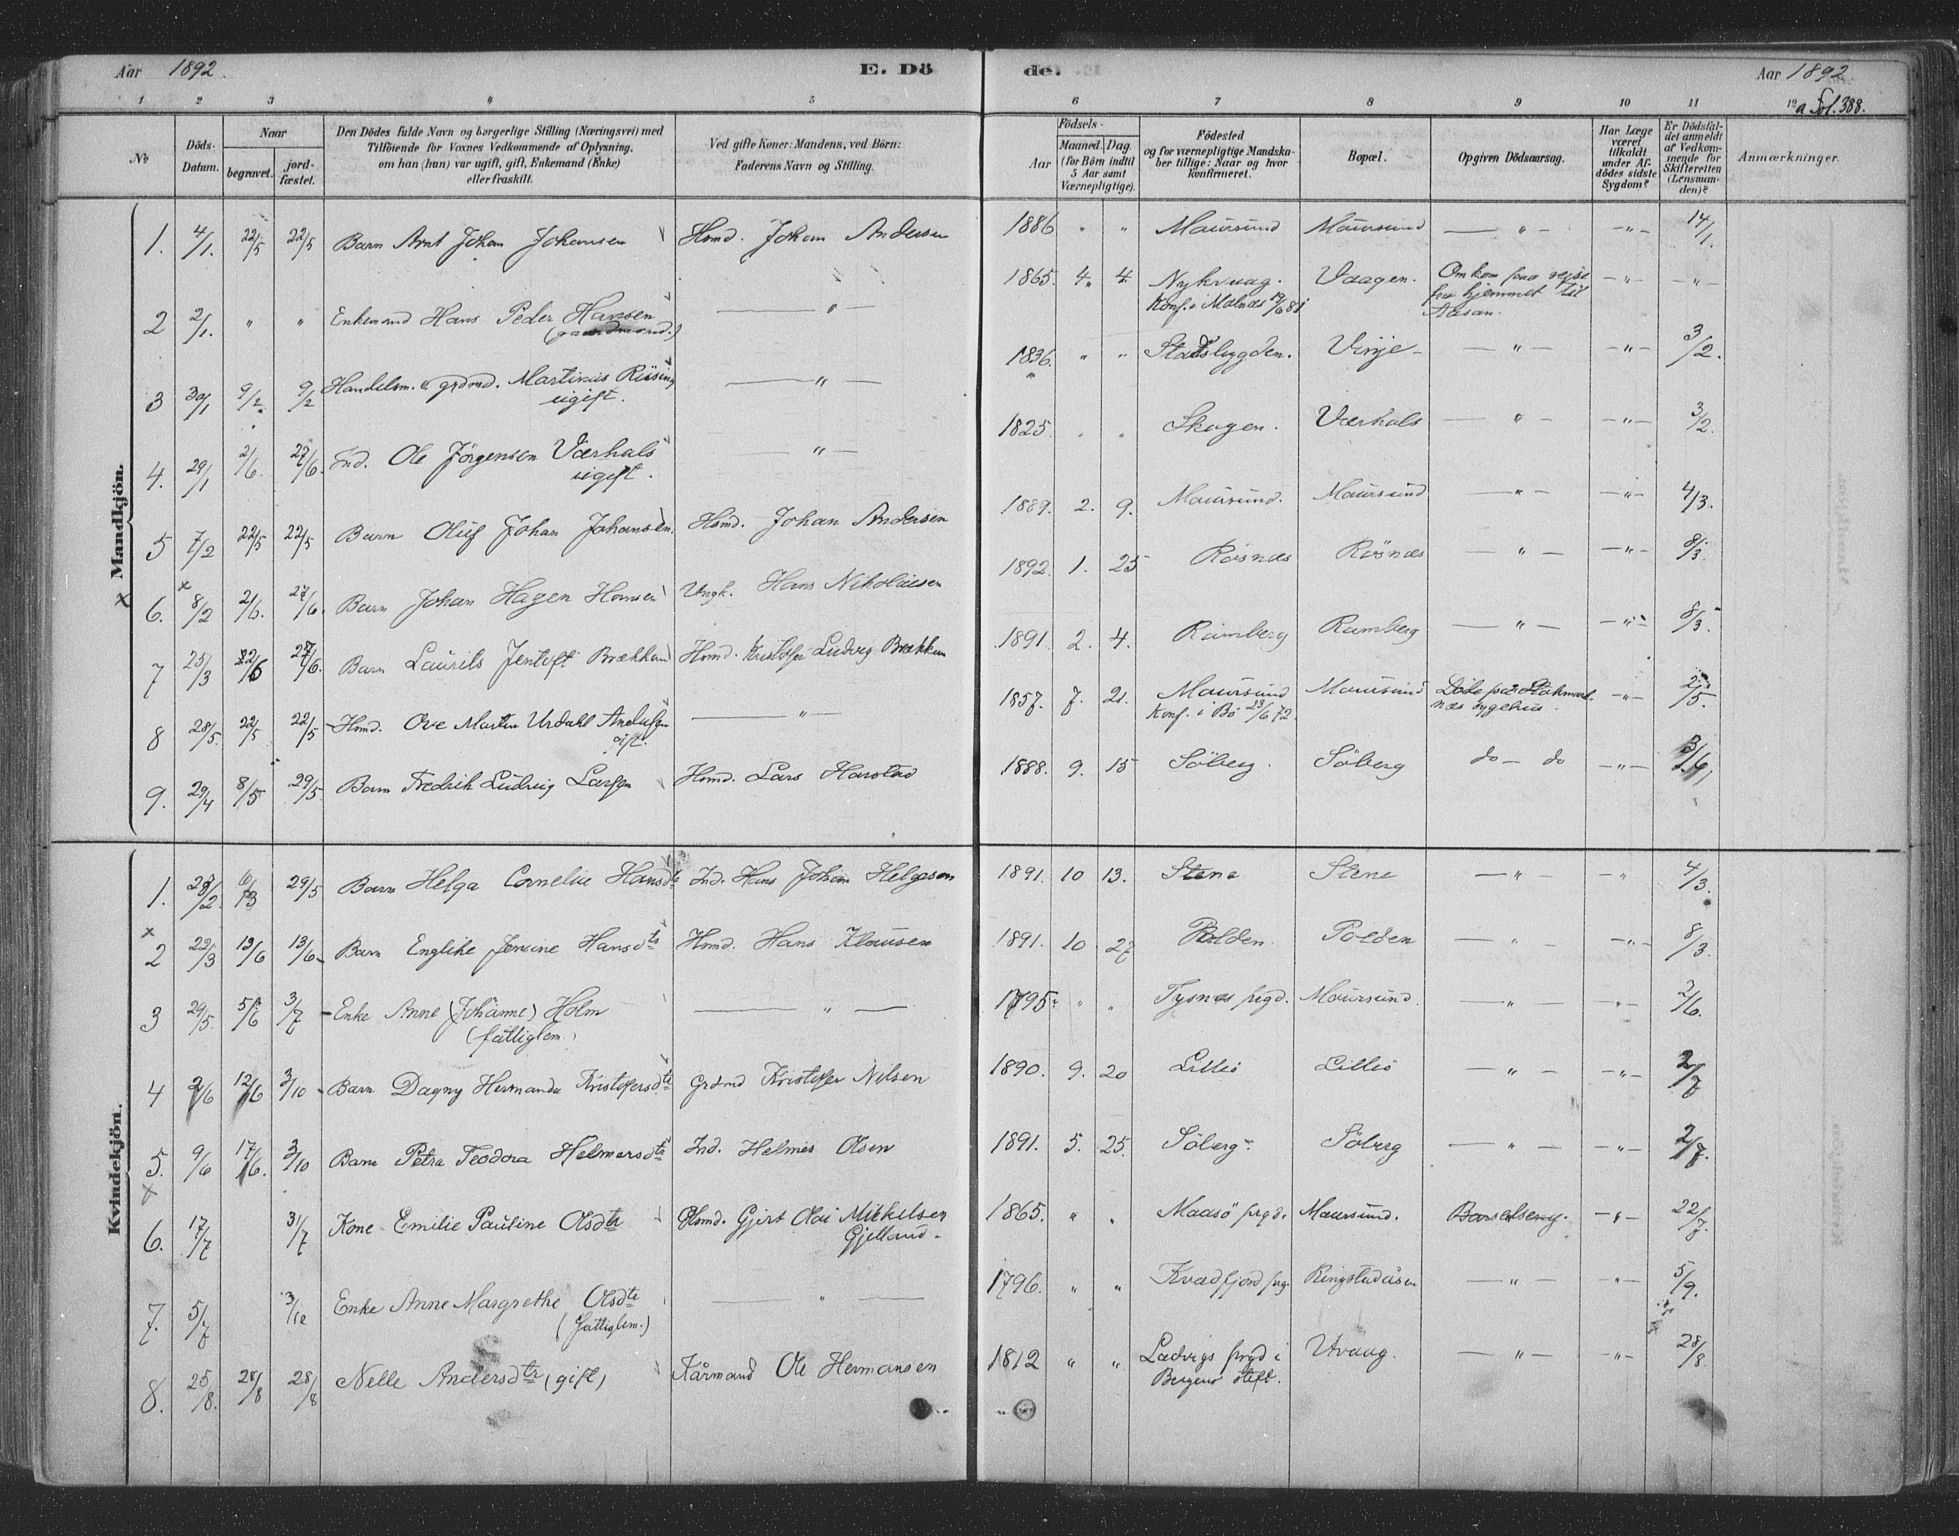 Aar 1892. E. Dö de. Aar 1892
a Fol. 388.
1 2 3 4 5 6 7 8 9 10 11 12
No
Döds-Datum.
Naar
begravet.
jordfæstet.
Den Dödes fulde Navn og borgerlige Stilling (Næringsvei) med
Tilföiende for Voxnes Vedkommende af Oplysning,
om han (hun) var ugift, gift, Enkemand (Enke)
eller fraskilt.
Ved gifte Koner: Mandens, ved Börn:
Faderens Navn og Stilling.
Födsels-
Aar
Maaned. Dag.
(for Börn indtil
5 Aar samt
Værnepligtige).
Födested
og for værnepligtige Mandskaber tillige: Naar og hvor
konfirmeret.
Bopæl.
Opgiven Dödsaarsag.
Har Læge
været
tilkaldt
under Afdödes sidste
Sygdom?
Er Dödsfaldet anmeldt
af Vedkommende for
Skifteretten
(Lensmanden)?
Anmærkninger.
Mandkjön.
1. 4/1. 22/5 22/5 Barn Arnt Johan Johansen Hsmd. Johan Andersen 1886 " " Maursund Maursund — " — — " — 14/1.
2 2/1. " " Enkemand Hans Peder Hansen — " — 1865. 4. 4. Nykvaag. Vaagen. Omkom paa rejse — " — "
(gaardmand.) Konf. i Malnæs 19/6 81 fra hjemmet til
Aasan.
3 30/1 9/2. 9/2 Handelsm. & grdmd. Martinus Rusing — " — 1836. " " Stadsbygden. Vinje — " — — " — 3/2.
ugift.
4. 29/1 2/6. 27/6. Ind. Ole Jörgensen Værhals — " — 1825. " " Skogen. Værhals — " — — " — 3/2.
ugift.
5 7/2 22/5 22/5 Barn Oluf Johan Johansen. Hsmd. Johan Andersen 1889. 2. 9. Maursund. Maursund — " — — " — 4/3.
6. 8/2 2/6. 27/6. Barn Johan Hagen Hansen Ungk. Hans Nikolaisen 1892. 1. 25 Røsnæs Røsnæs — " — — " — 8/3.
7 25/3 22/6 27/6. Barn Laurits Jentoft Brækkan Hsmd. Kristoffer Ludvig Brækkan 1891. 2. 4. Ramberg Ramberg — " — — " — 8/3.
8 28/5. 22/5 22/5 Hsmd. Ove Martin Urdahl Andersen — " — 1857. 7. 21. Maursund Maursund Døde paa Stokmark- — " —
gift. Konf. i Bø 23/6 72. næs sygehus.
9. 29/4 8/5 29/5 Barn Fredrik Ludvig Larsen Hsmd. Lars Harstad 1888. 9. 15 Söberg. Söberg do — do — " —
Kvindekjön.
1. 28/2. 6/3 29/5 Barn Helga Cornelie Hansdtr Ind. Hans Johan Helgesen 1891. 10 13. Stene Stene — " — — " — 4/3.
2 22/3 13/6 13/6 Barn Englike Jensine Hansdtr Hsmd. Hans Klausen 1891. 10 27 Polden. Polden — " — — " — 8/3.
3 29/5. 5/6 3/7 Enke Anne (Johanne) Holm — " — 1795. " " Tysnæs prgd. Maursund. — " — " 2/6.
(fattiglem.)
4 2/6 12/6 3/10 Barn Dagny Hermanda Kristofersdtr Grdmd Kristoffer Nilsen 1890. 9. 20 Lilleö Lilleö — " — — " — 2/7
5. 9/6 17/6. 3/10 Barn Petra Teodora Helmersdtr Ind. Helmer Olsen 1891. 5. 25. Söberg Söberg — " — — " — 2/7.
6. 17/7 31/7 Kone Emilie Pauline Olsdtr Hsmd. Gjert Olai Mikelsen 1865. " " Maasö prgd. Maursund. Barselseng. — " — 22/7.
Gjelland.
7. 5/7 3/12 Enke Anne Margrethe Olsdtr — " — 1796. " " Kvædfjord prg. Ringstadåsen — " — — " — 5/9.
(Fattiglem.)
8. 25/8. 28/8 28/8 Nelle Andersdtr (gift) Kårmand Ole Hermansen 1812 " " Ladvigs prgd i Utvaag. — " — — " — 28/8.
Bergens stift.